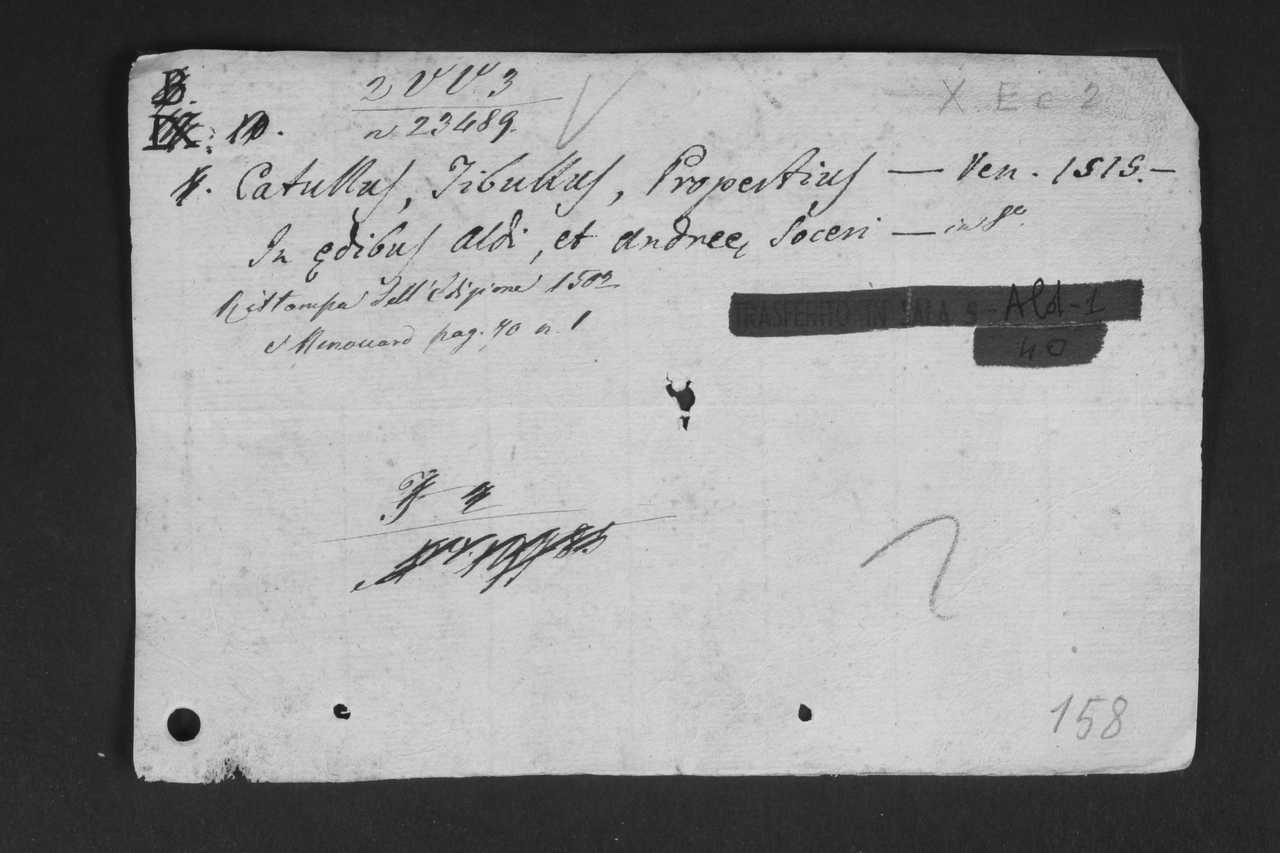 B.
IX: 10.
2 V V 3
n 23489.
X E c 2
4. Catullus, Tibullus, Propertius — Ven. 1515. —
In ędibus Aldi, et Andreę Soceri — in 8.º
Ristampa dell'Edizione 1502
V Renouard pag. 70 n. 1
TRASFERITO IN SALA S - Ald - 1
40
158